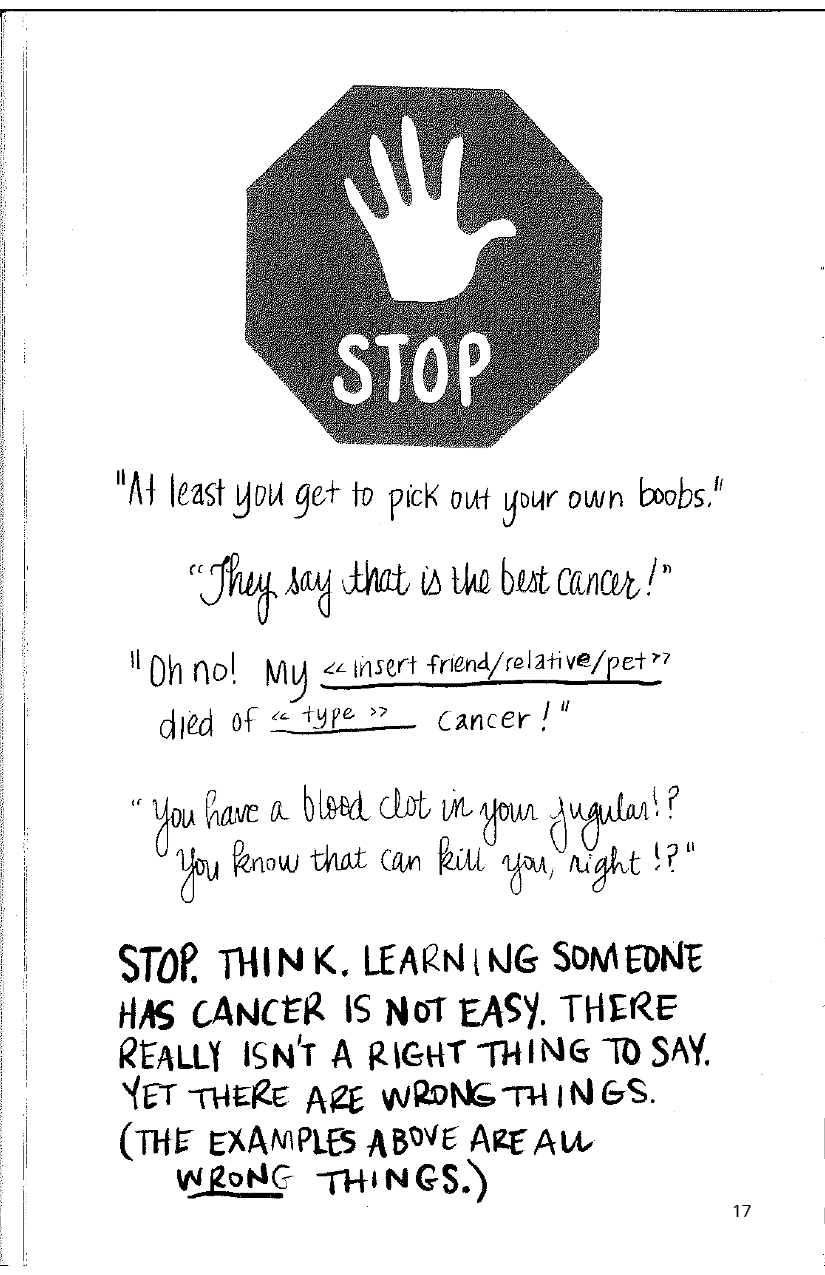 STOP
"At least you get to pick out your own boobs."
"They say that is the best cancer!"
"Oh no! My << insert friend/relative/pet >>
died of << type >> cancer!"
"You have a blood clot in your jugular!?
You know that can kill you, right!?"
STOP. THINK. LEARNING SOMEONE
HAS CANCER IS NOT EASY. THERE
REALLY ISN'T A RIGHT THING TO SAY.
YET THERE ARE WRONG THINGS.
(THE EXAMPLES ABOVE ARE ALL
WRONG THINGS.)
17